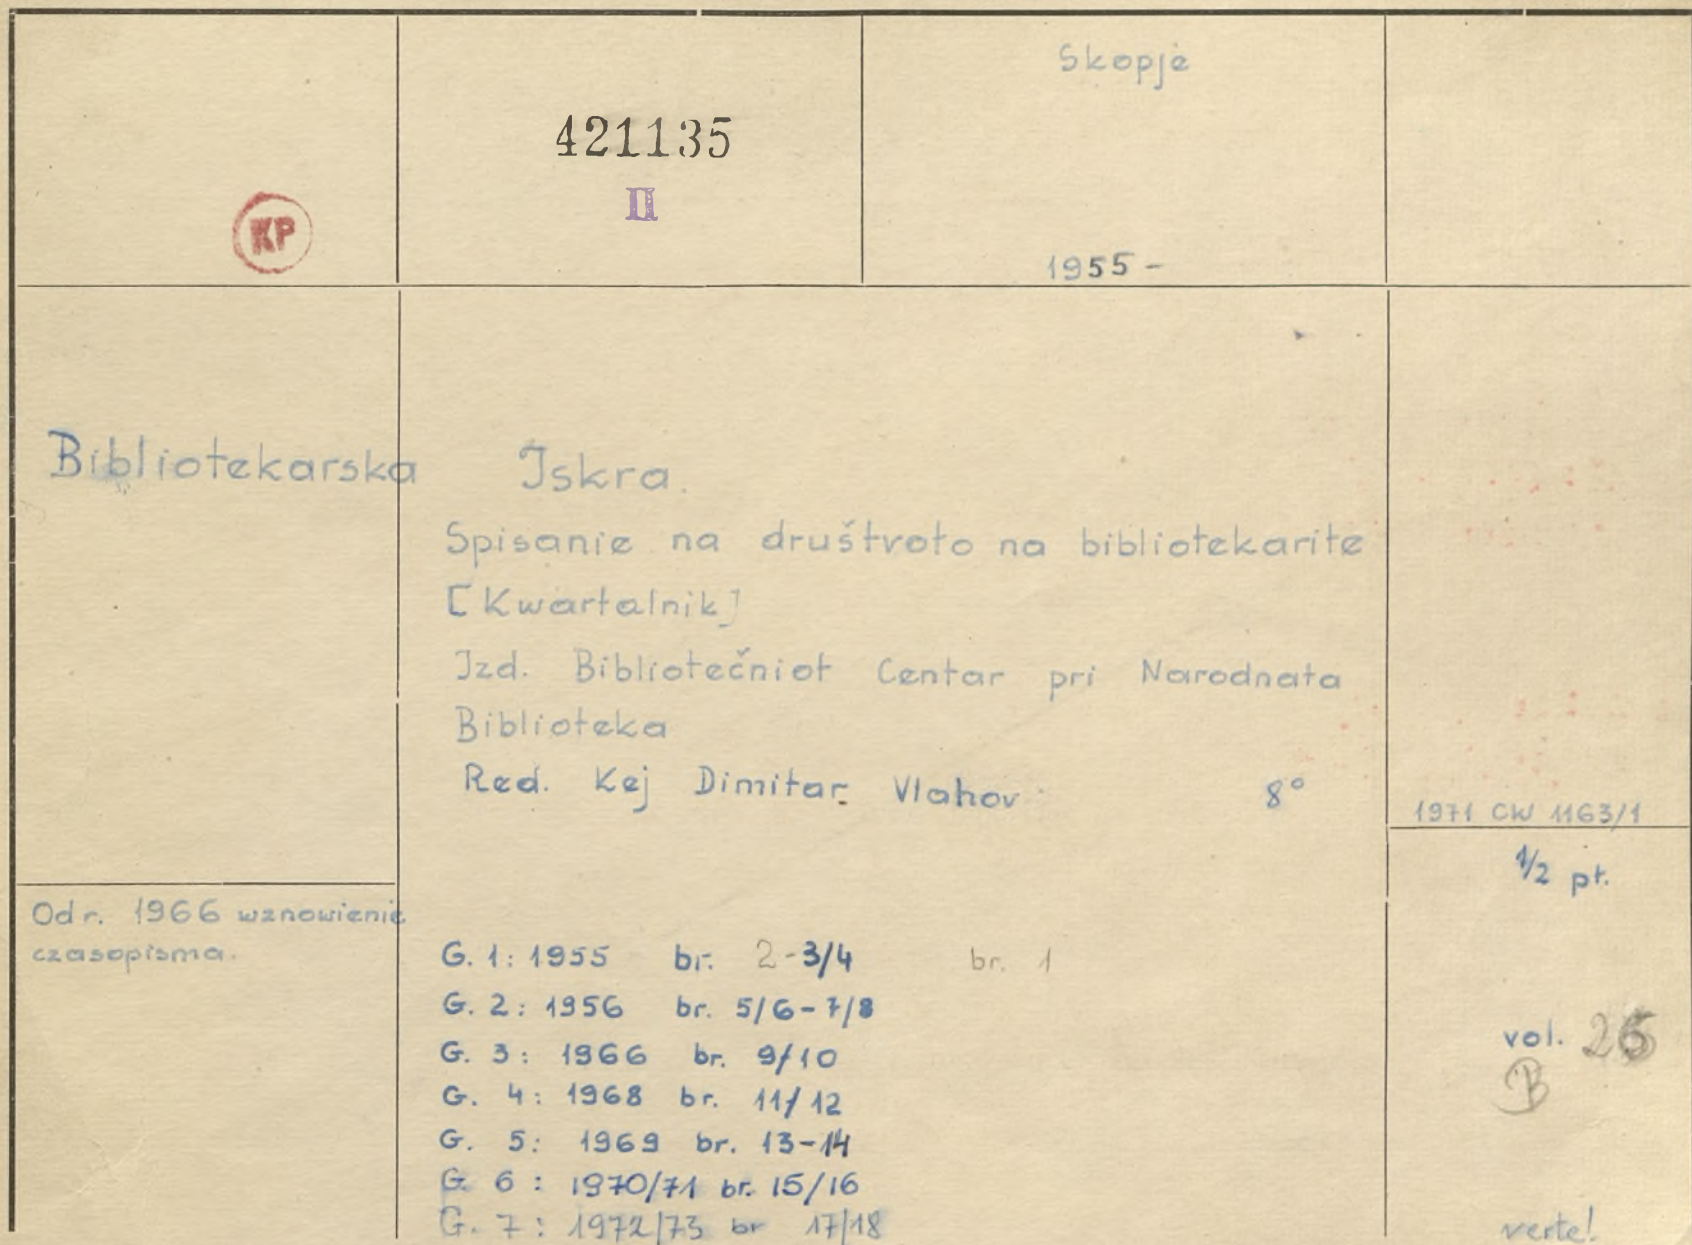 Skopje
421135
II
KP
1955 -
Bibliotekarska Iskra.
Spisanie na društvoto na bibliotekarite
[Kwartalnik]
Izd. Bibliotečniot Centar pri Narodnata
Biblioteka
Red. Kej Dimitar Vlahov 8°
1971 CW 1163/1
1/2 pt.
Od r. 1966 wznowienie
czasopisma.
G. 1: 1955 br. 2-3/4 br. 1
G. 2: 1956 br. 5/6-7/8
G. 3: 1966 br. 9/10
vol.
B
G. 4: 1968 br. 11/12
G. 5: 1969 br. 13-14
G. 6: 1970/71 br. 15/16
G. 7: 1972/73 br 17/18
verte!